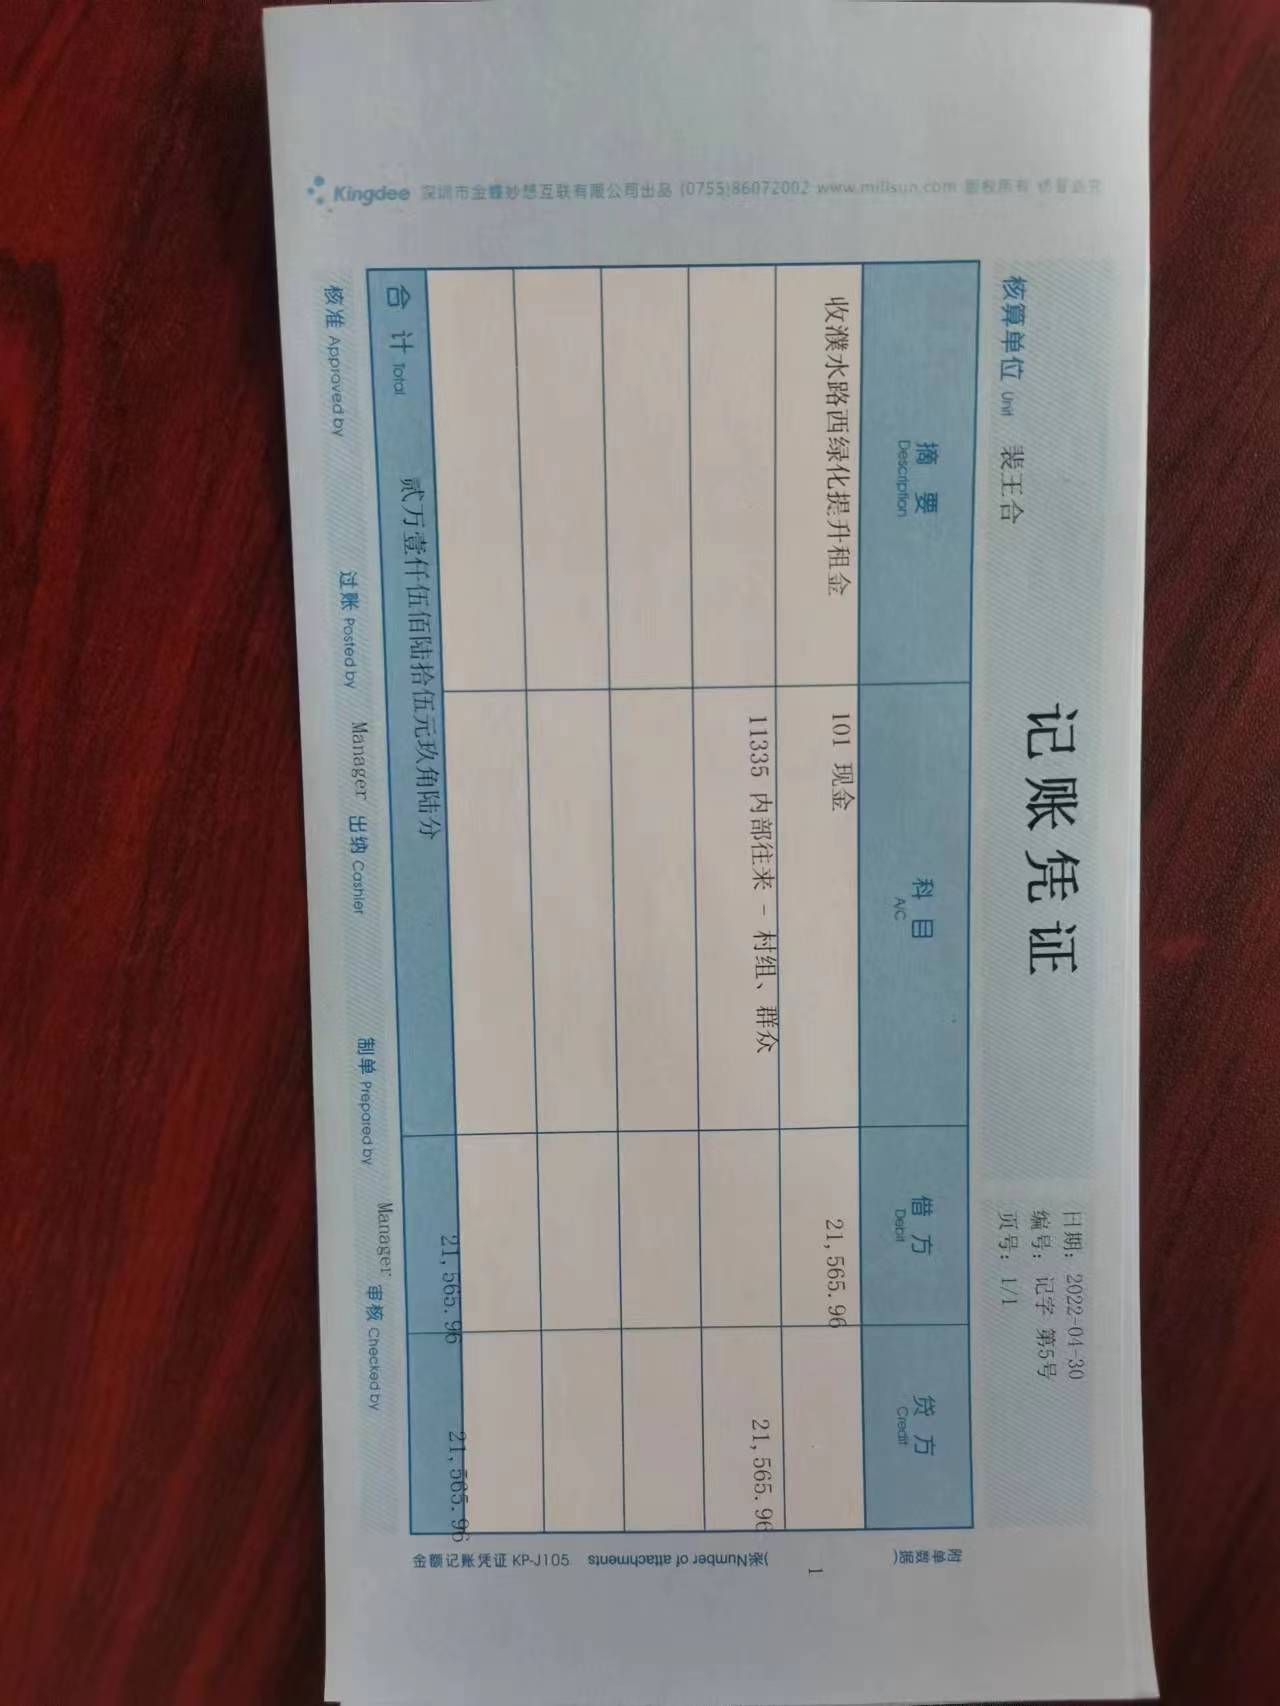 记账凭证
核算单位 Unit 裴王合
日期: 2022-04-30
编号: 记字 第5号
页号: 1/1
摘 要 Description 科 目 A/C 借 方 Debit 贷 方 Credit
收濮水路西绿化提升租金 101 现金 21,565.96
11335 内部往来 - 村组、群众 21,565.96
合 计 Total 贰万壹仟伍佰陆拾伍元玖角陆分 21,565.96 21,565.96
核准 Approved by 过账 Posted by Manager 出纳 Cashier 制单 Prepared by Manager 审核 Checked by
附单数据( 1 )张Number of attachments
金额记账凭证 KP-J105
Kingdee 深圳市金蝶妙想互联有限公司出品 (0755)86072002 www.millsun.com 版权所有 仿冒必究